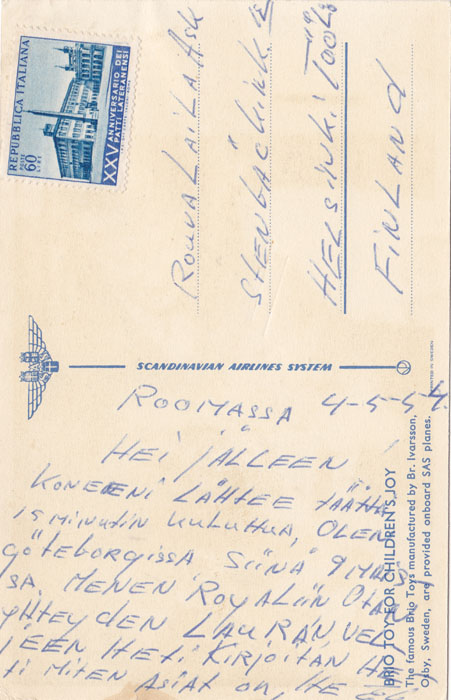 REPUBBLICA ITALIANA
POSTE
LIRE
60
XXV ANNIVERSARIO DEI
PATTI LATERANENSI
ROUVA LAILA
STENBÄCKINK
HELSINKI TÖÖLÖ
FINLAND
SCANDINAVIAN AIRLINES SYSTEM
PRINTED IN SWEDEN
ROOMASSA 4-5-54.
HEI JÄLLEEN!
KONEENI LÄHTEE TÄÄLTÄ
15 MINUUTIN KULUTTUA, OLEN
GÖTEBORGISSA SIINÄ 9
SA. MENEN ROYALIIN OTAN
YHTEYDEN LAURAN VEL
JEEN HETI KIRJOITAN
TI MITEN ASIAT ON,
BRIO TOY FOR CHILDREN'S JOY
The famous Brio Toys manufactured by Br. Ivarsson,
Osby, Sweden, are provided onboard SAS planes.